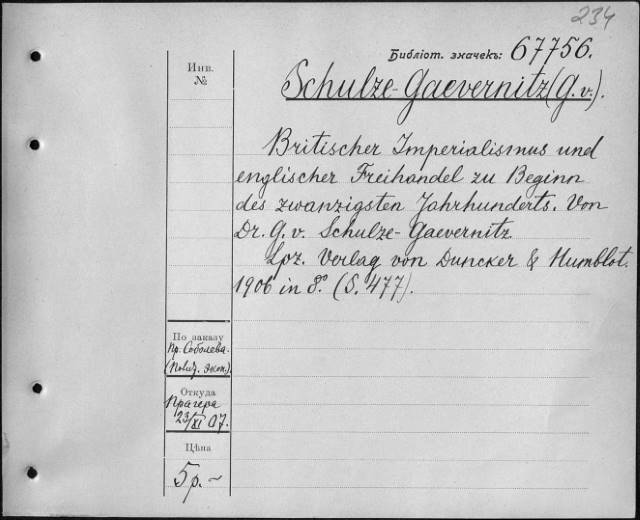 234
Библіот. значекъ: 67756.
Инв.
№
Schulze-Gaevernitz (G. v.).
Britischer Imperialismus und
englischer Freihandel zu Beginn
des zwanzigsten Jahrhunderts. Von
Dr. G. v. Schulze-Gaevernitz
Lpz. Verlag von Duncker & Humblot.
1906 in 8.° (S. 477).
По заказу
Пр. Соболева.
(Полит. Экон.).
Откуда
Прагера
23/XI 07.
Цѣна
5 р. ~